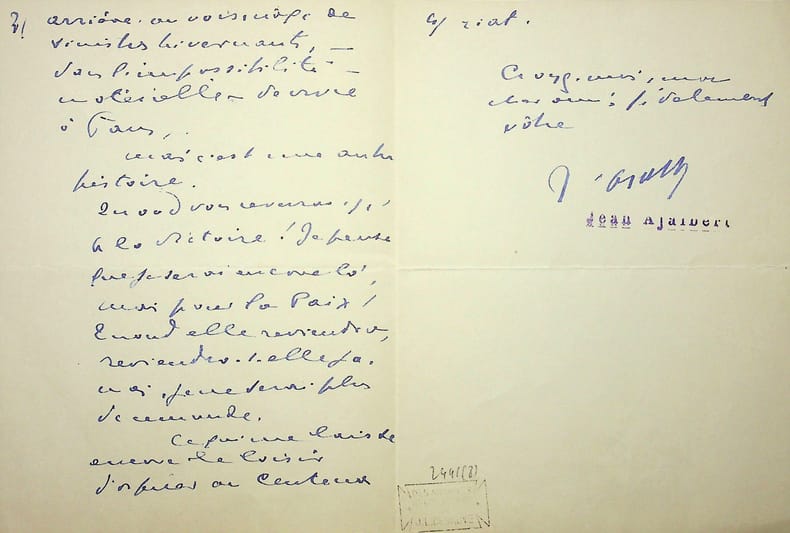 3/ arrière. au voisinage de
sinistres hivernants, —
dans l'impossibilité —
matérielle — de vivre
à Paris,.
mais c'est une autre
histoire.
Quand vous reverrai-je,
à la Victoire ! Je pense
que je serai encore là,
mais pour la Paix !
Quand elle reviendra,
reviendra-t-elle ja-
mais, je ne serai plus
de ce monde.
Ce qui me laisse
encore le loisir
d'aspirer au Centena
4/ riat.
Croyez-moi, mon
cher ami, fidèlement
vôtre
Jean Ajalbert